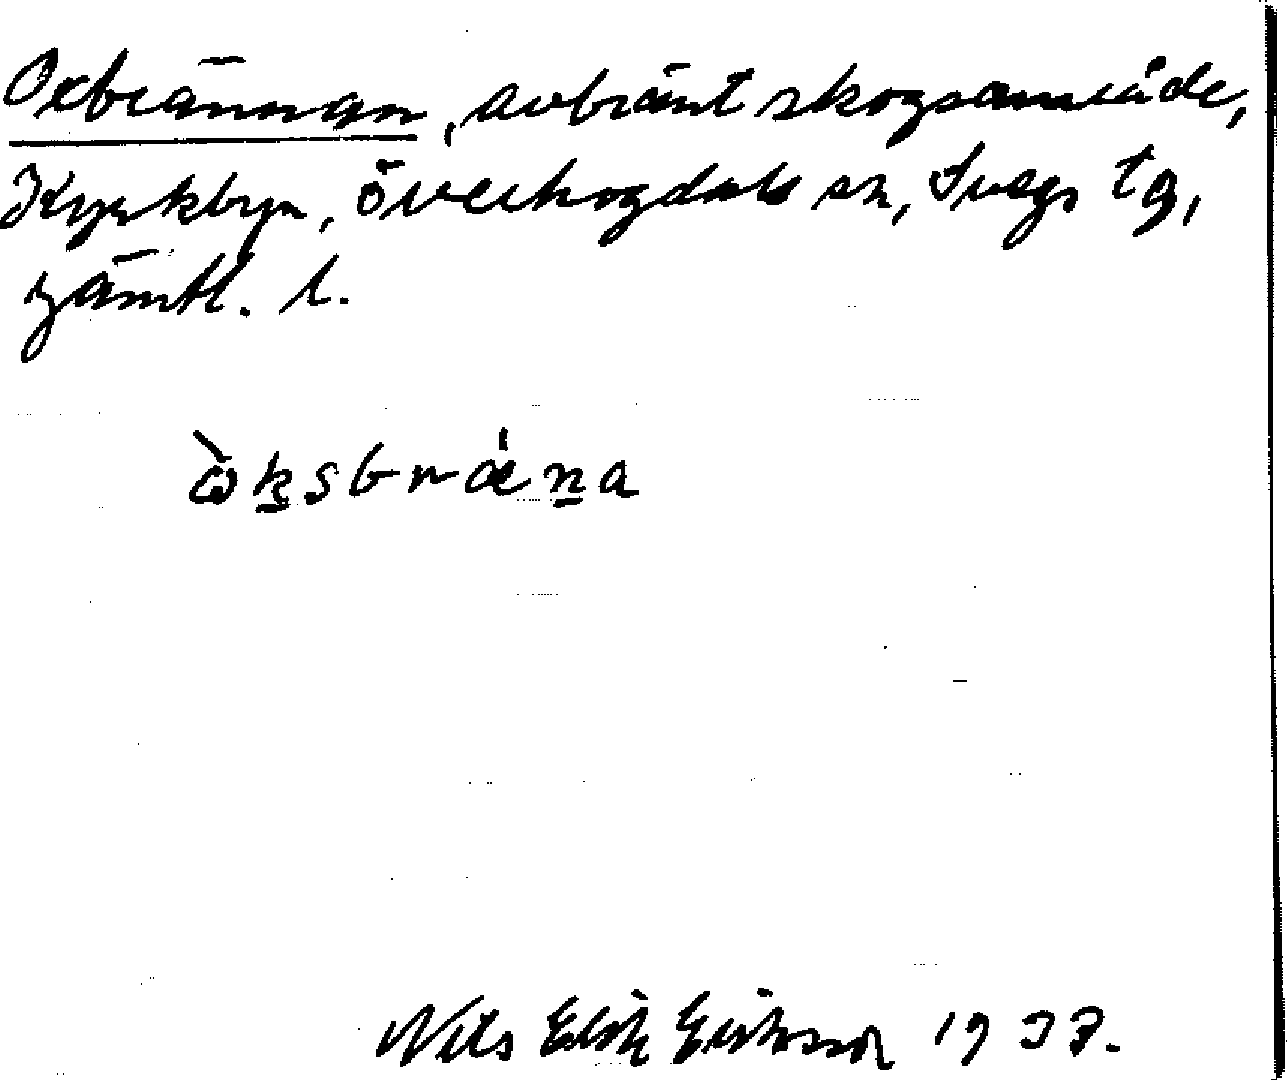 Oxbrännan, avbränt skogsområde,
Kyrkbyn, Överhogdals sn, Svegs tg,
Jämtl. l.
ὼk̲sbrǽn̲a
Nils Erik Eriksson 1937.